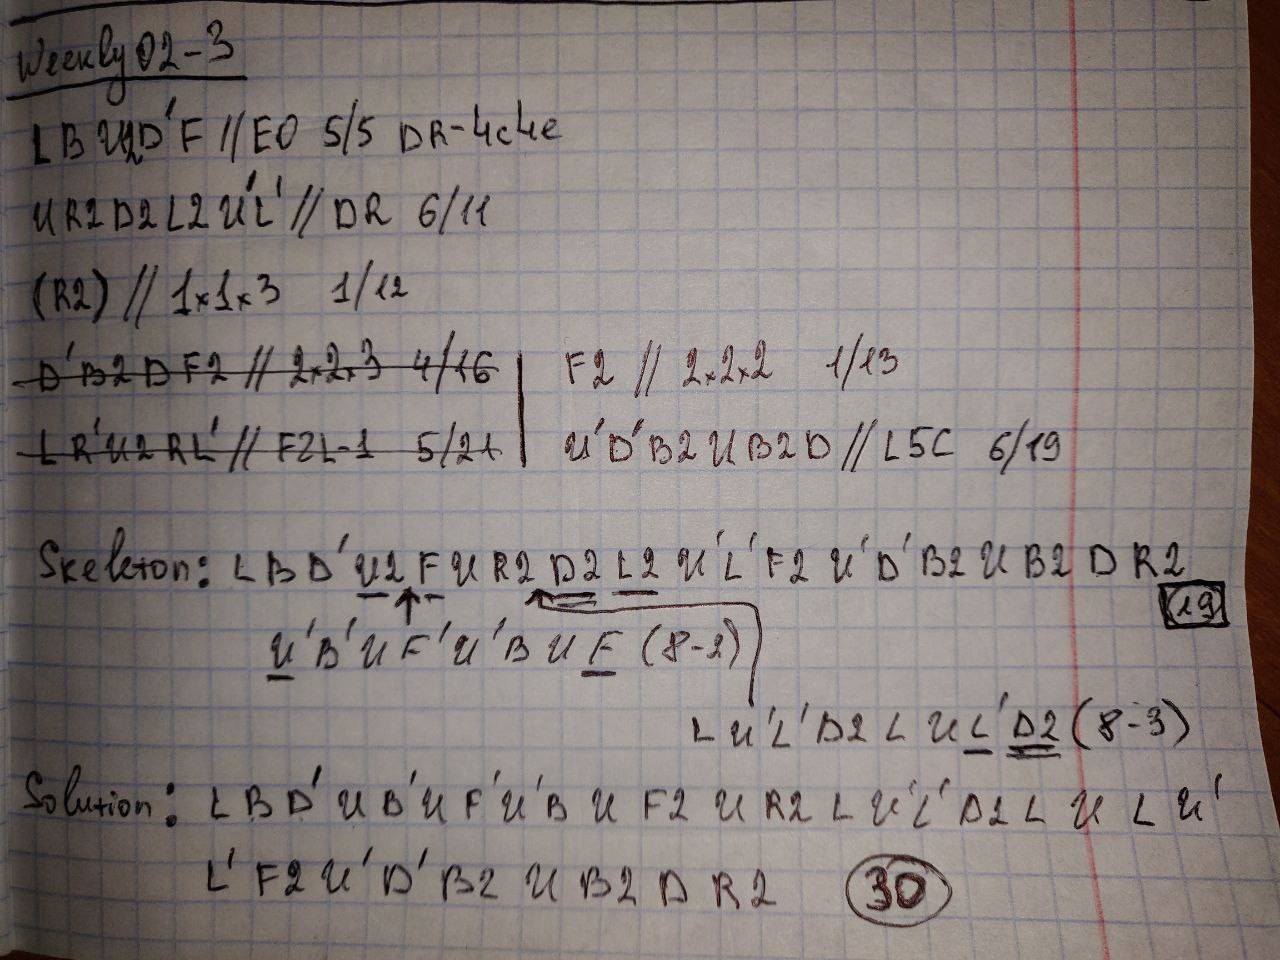 Weekly 02-3
L B U2 D' F // EO 5/5 DR-4c4e
U R2 D2 L2 U' L' // DR 6/11
(R2) // 1x1x3 1/12
D' B2 D F2 // 2x2x3 4/16
F2 // 2x2x2 1/13
L R' U2 R L' // F2L-1 5/21
U' D' B2 U B2 D // L5C 6/19
Skeleton: L B D' U2 F U R2 D2 L2 U' L' F2 U' D' B2 U B2 D R2
(19)
U' B' U F' U' B U F (8-2)
L U' L' D2 L U L' D2 (8-3)
Solution: L B D' U B' U F' U' B U F2 U R2 L U' L' D2 L U L U'
L' F2 U' D' B2 U B2 D R2 30